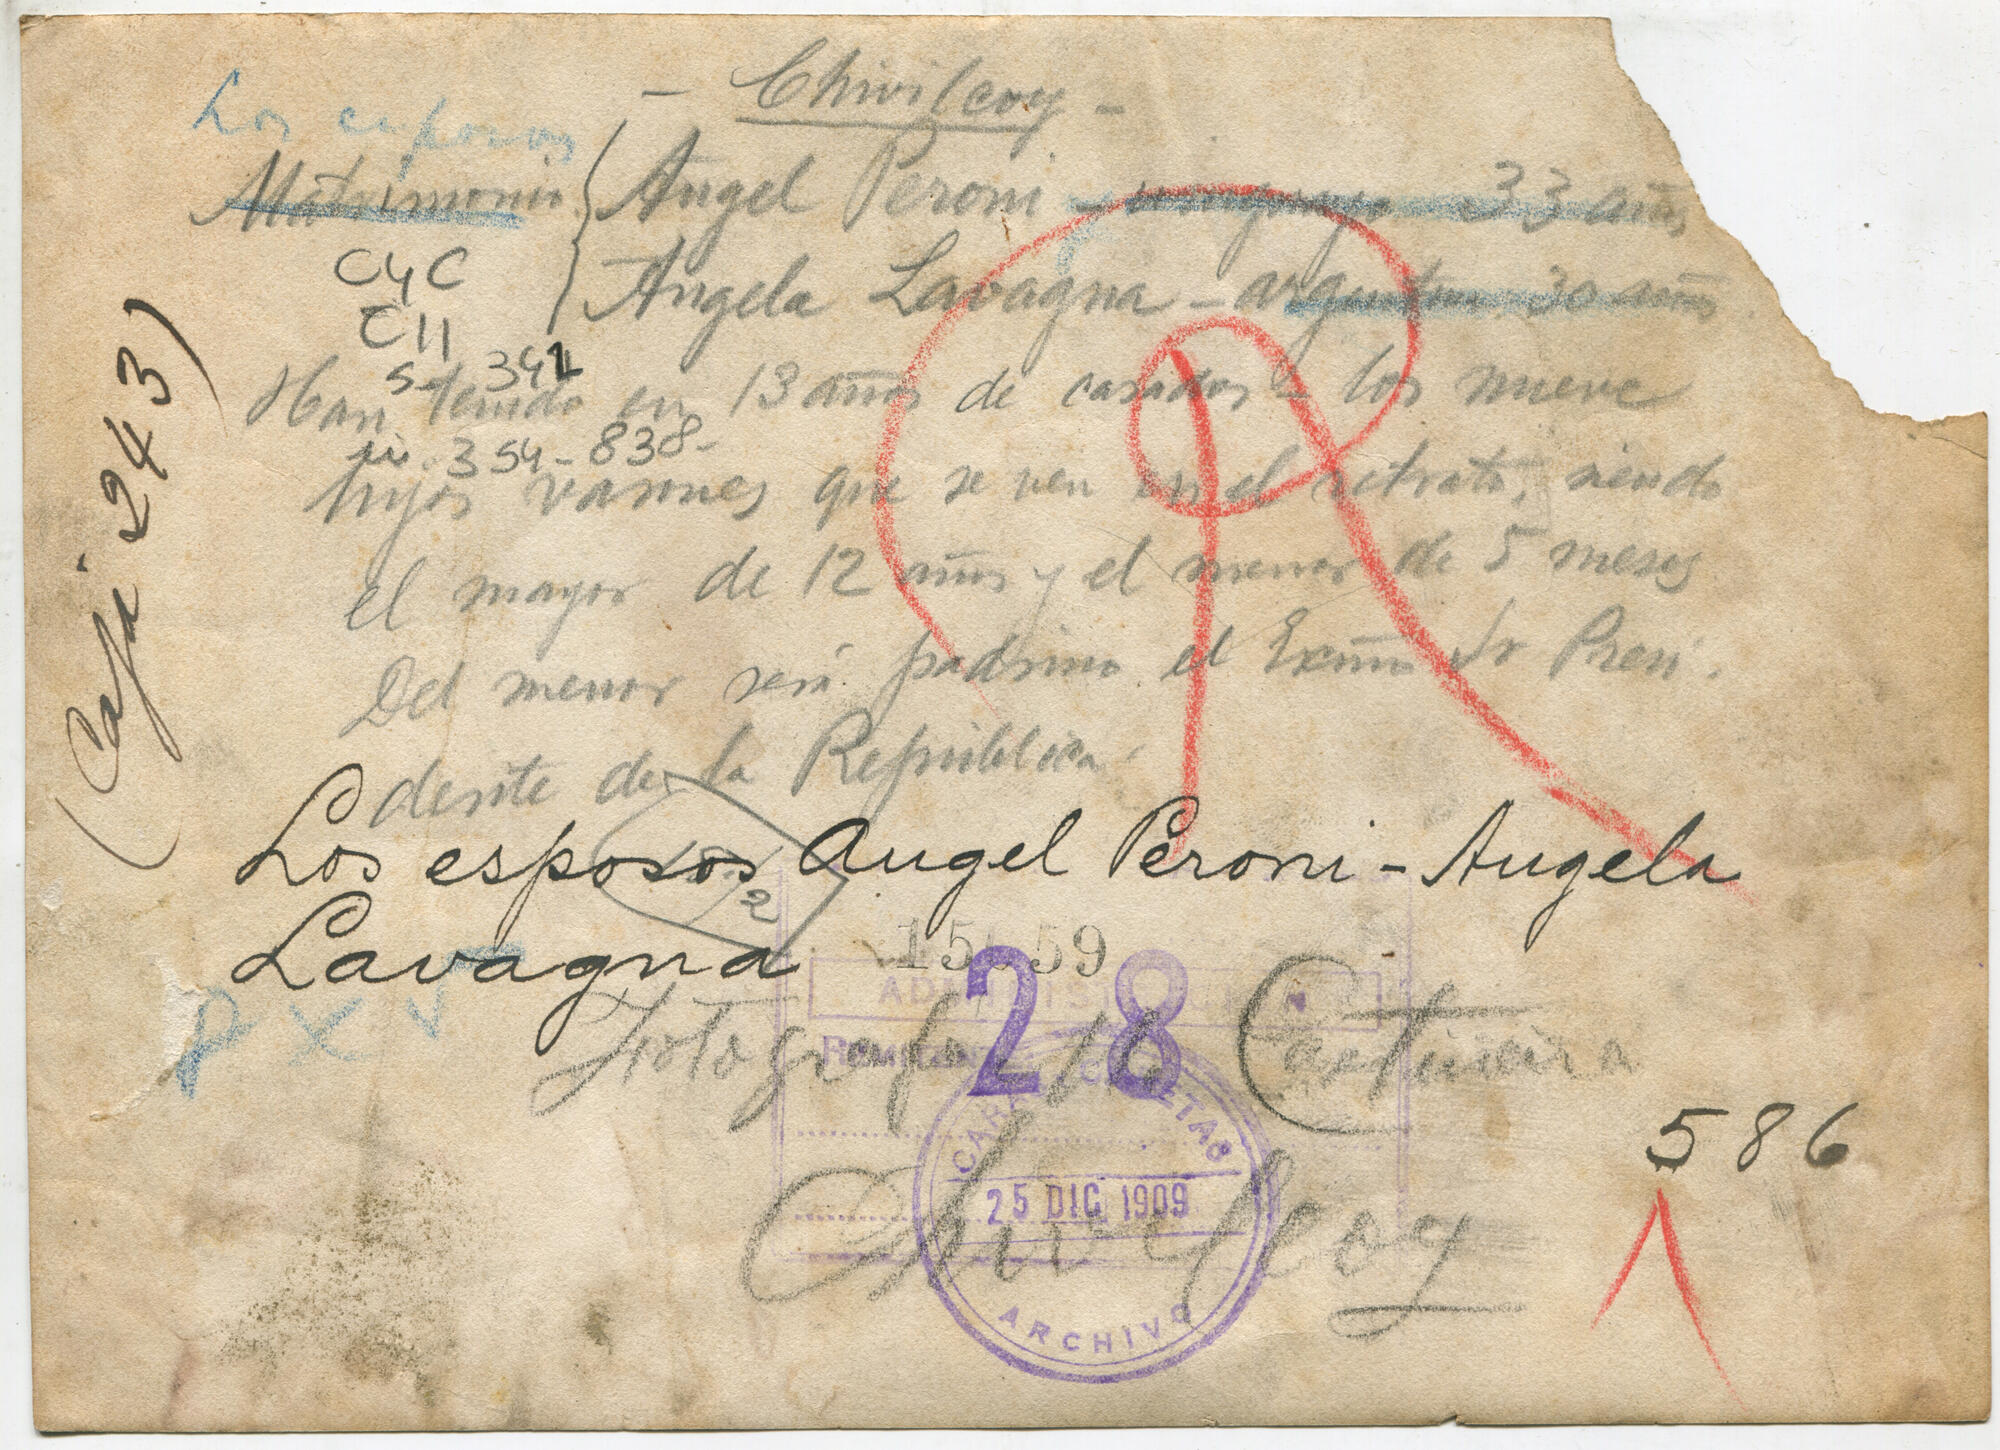 - Chivilcoy -
Los esposos
Matrimonio { Angel Peroni 33 años
Angela Lavagna - argentina 30 años
CyC
C11
S- 341
Han tenido en 13 años de casados - los nueve
354-838-
hijos varones que se ven en el retrato, siendo
el mayor de 12 años y el menor de 5 meses
Del menor será padrino el Exmo Sr Presi-
dente de la República
(Caja 243)
Los esposos Angel Peroni - Angela
Lavagna
2
59
28
P X V
Fotografía Castineira
Chivilcoy
CARAS Y CARETAS
25 DIC 1909
ARCHIVO
586
R